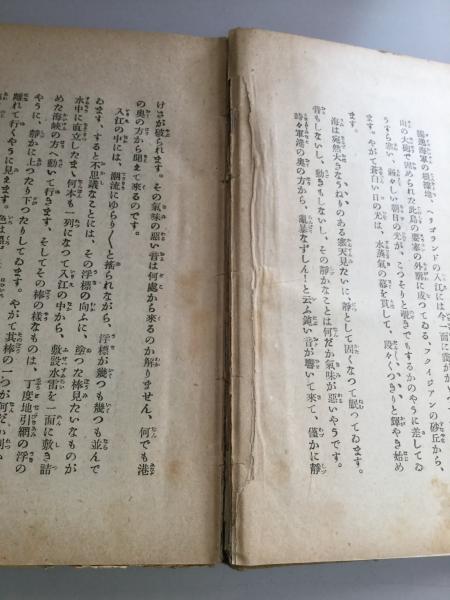 獨逸海軍の根據地、ヘリゴランドの入江には今一面に靄がか
山の大砲で固められた此島の要塞の外廓に成つてゐる、フクイジアンの砂丘から、
うすら寒い、弱々しい朝日の光が、こつそりと覗きでもするかのやうに差してゐ
ます。やがて蒼白い日の光は、水蒸氣の幕を貫して、段々くつきりと輝やき始め
ます。
海は宛然大きなうねりのある寒天見たいに靜として固くなつて眠つてゐます。
音もしないし、動きもしないし、その靜かなことは何だか氣味が惡いやうです。
時々軍港の奥の方から、亂暴なずしん!と云ふ鈍い音が響いて來て、僅かに靜
けさが破られます。その氣味の惡い音は何處から來るのか解りません、何でも港
の奥の方から聞えて來るのです。
入江の中には、潮流にゆらり〱と搖られながら、浮標が幾つも幾つも並んで
ゐます、すると不思議なことには、その浮標の向ふに、塗つた棒見たいなものが
水中に直立したまゝ何本も一列になつて入江の中から、敷設水雷を一面に敷き詰
めた海峡の方へ動いて行きます、そしてその棒の樣なものは、丁度地引網の浮の
やうに、靜かに上つたり下つたりしてゐます。やがて其棒の一つが何だか
離れて行くやうに見えます。